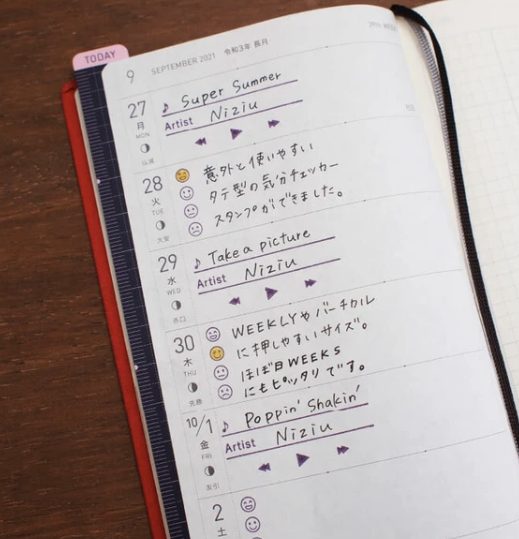 TODAY
9 SEPTEMBER 2021 令和3年 長月
27
月
MON
仏滅
♪ Super Summer
Artist Niziu
28
火
TUE
大安
意外と使いやすい
タテ型の気分チェッカー
スタンプができました。
29
水
WED
赤口
♪ Take a picture
Artist Niziu
30
木
THU
先勝
WEEKLYやバーチカル
に押しやすいサイズ。
ほぼ日WEEKS
にもピッタリです。
10/1
金
FRI
友引
♪ Poppin' Shakin'
Artist Niziu
2
土